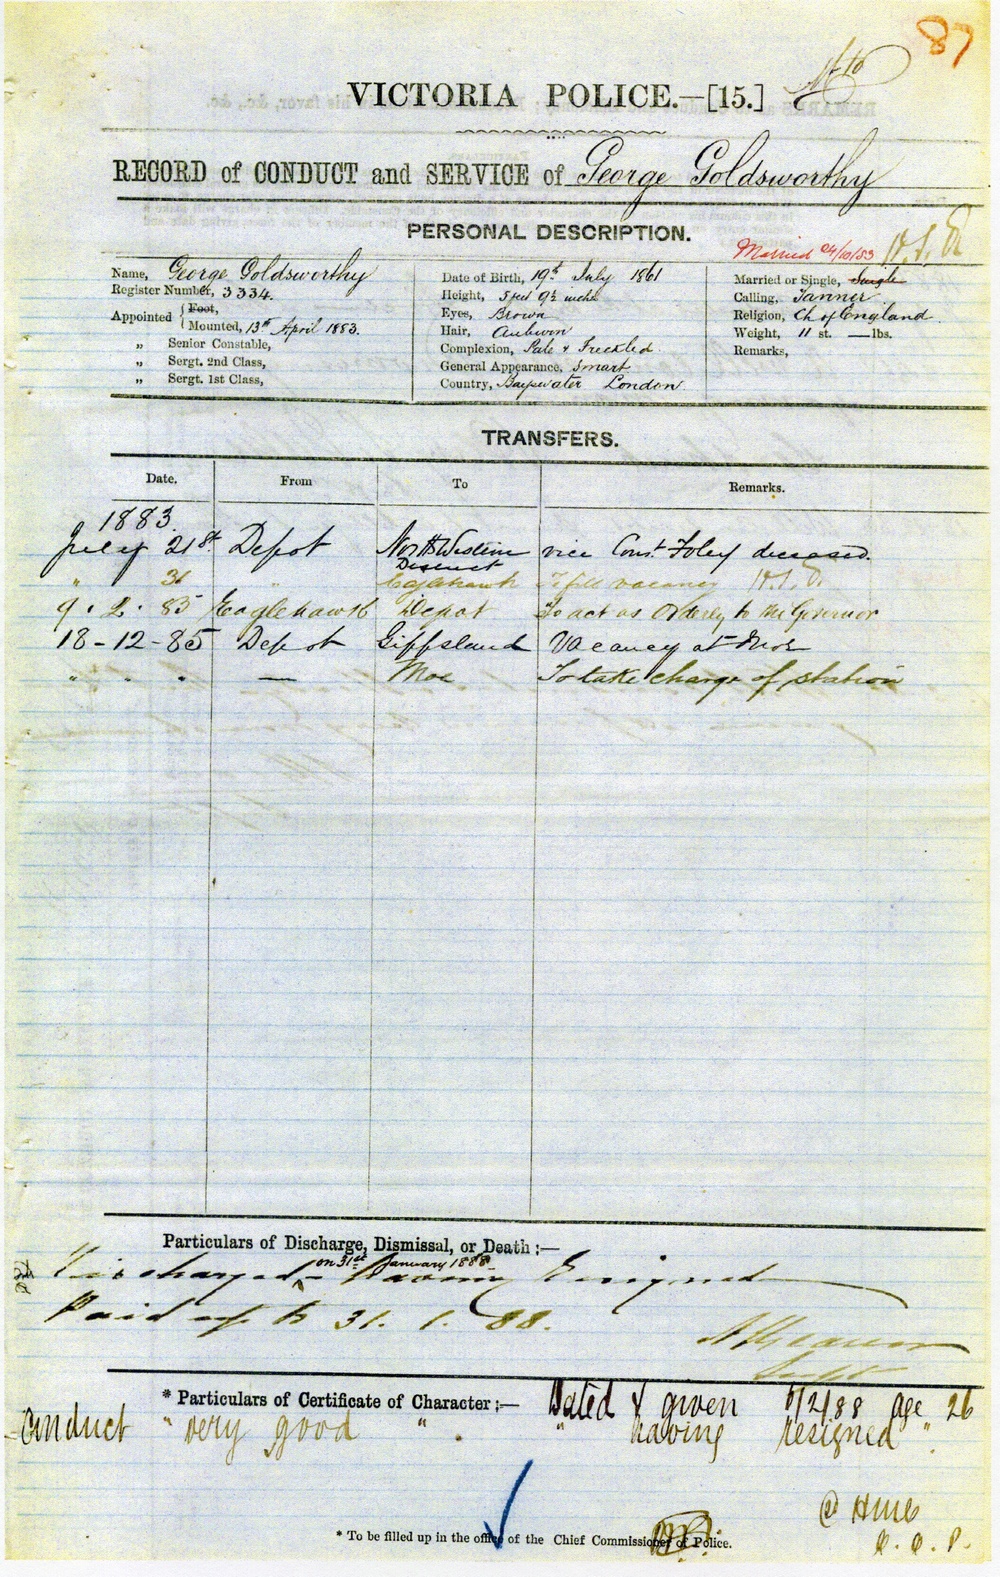 87
VICTORIA POLICE.—[15.]
RECORD of CONDUCT and SERVICE of George Goldsworthy
PERSONAL DESCRIPTION.
Married 24/10/83
Name, George Goldsworthy
Register Number, 3334.
Appointed { Foot,
Mounted, 13th April 1883.
„ Senior Constable,
„ Sergt. 2nd Class,
„ Sergt. 1st Class,
Date of Birth, 19th July 1861
Height, 5 feet 9½ inches
Eyes, Brown
Hair, Auburn
Complexion, Pale & Freckled
General Appearance, Smart
Country, Bayswater London
Married or Single, Single
Calling, Tanner
Religion, Ch of England
Weight, 11 st. — lbs.
Remarks,
TRANSFERS.
Date. From To Remarks.
1883.
July 21st Depot North Western District vice Const. Foley deceased.
" 31 " Eaglehawk To fill vacancy
9. 2. 85 Eaglehawk Depot To act as Orderly to the Governor
18-12-85 Depot Gippsland Vacancy at Moe
" " " — Moe To take charge of station
Particulars of Discharge, Dismissal, or Death :—
on 31st January 1888
Discharged - having resigned
Paid up to 31. 1. 88.
Supt
* Particulars of Certificate of Character :— Dated & given 6/2/88 age 26
Conduct "very good". " having resigned".
* To be filled up in the office of the Chief Commissioner of Police.